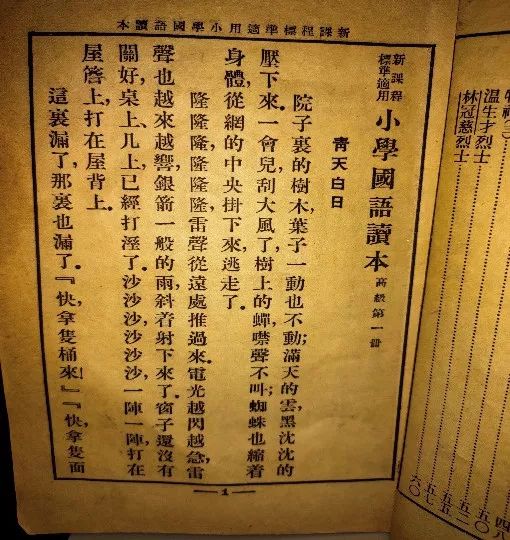 溫生才烈士
林冠慈烈士
新課程標準適用小學國語讀本
新課程
標準適用
小學國語讀本 高級第一冊
靑天白日
院子裏的樹木葉子一動也不動;滿天的雲,黑沈沈的
壓下來。一會兒刮大風了,樹上的蟬,噤聲不叫;蜘蛛也縮着
身體,從網的中央掛下來,逃走了。
隆隆隆,隆隆隆,雷聲從遠處推過來。電光越閃越急,雷
聲也越來越響,銀箭一般的雨,斜着射下來了。窗子還沒有
關好,桌上、几上,已經打溼了。沙沙沙,沙沙沙,一陣一陣,打在
屋簷上,打在屋背上。
這裏漏了,那裏也漏了。『快,拿隻桶來!』『快,拿隻面
1